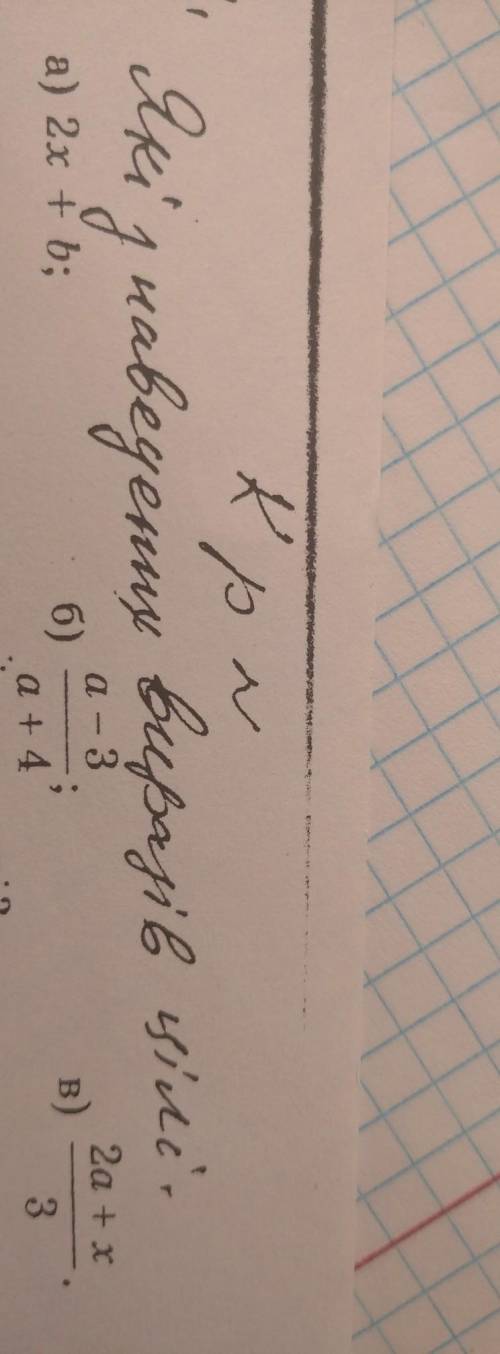 К р №
Які з наведених виразів цілі.
а) 2x + b; б) \frac{a - 3}{a + 4}; в) \frac{2a + x}{3}.